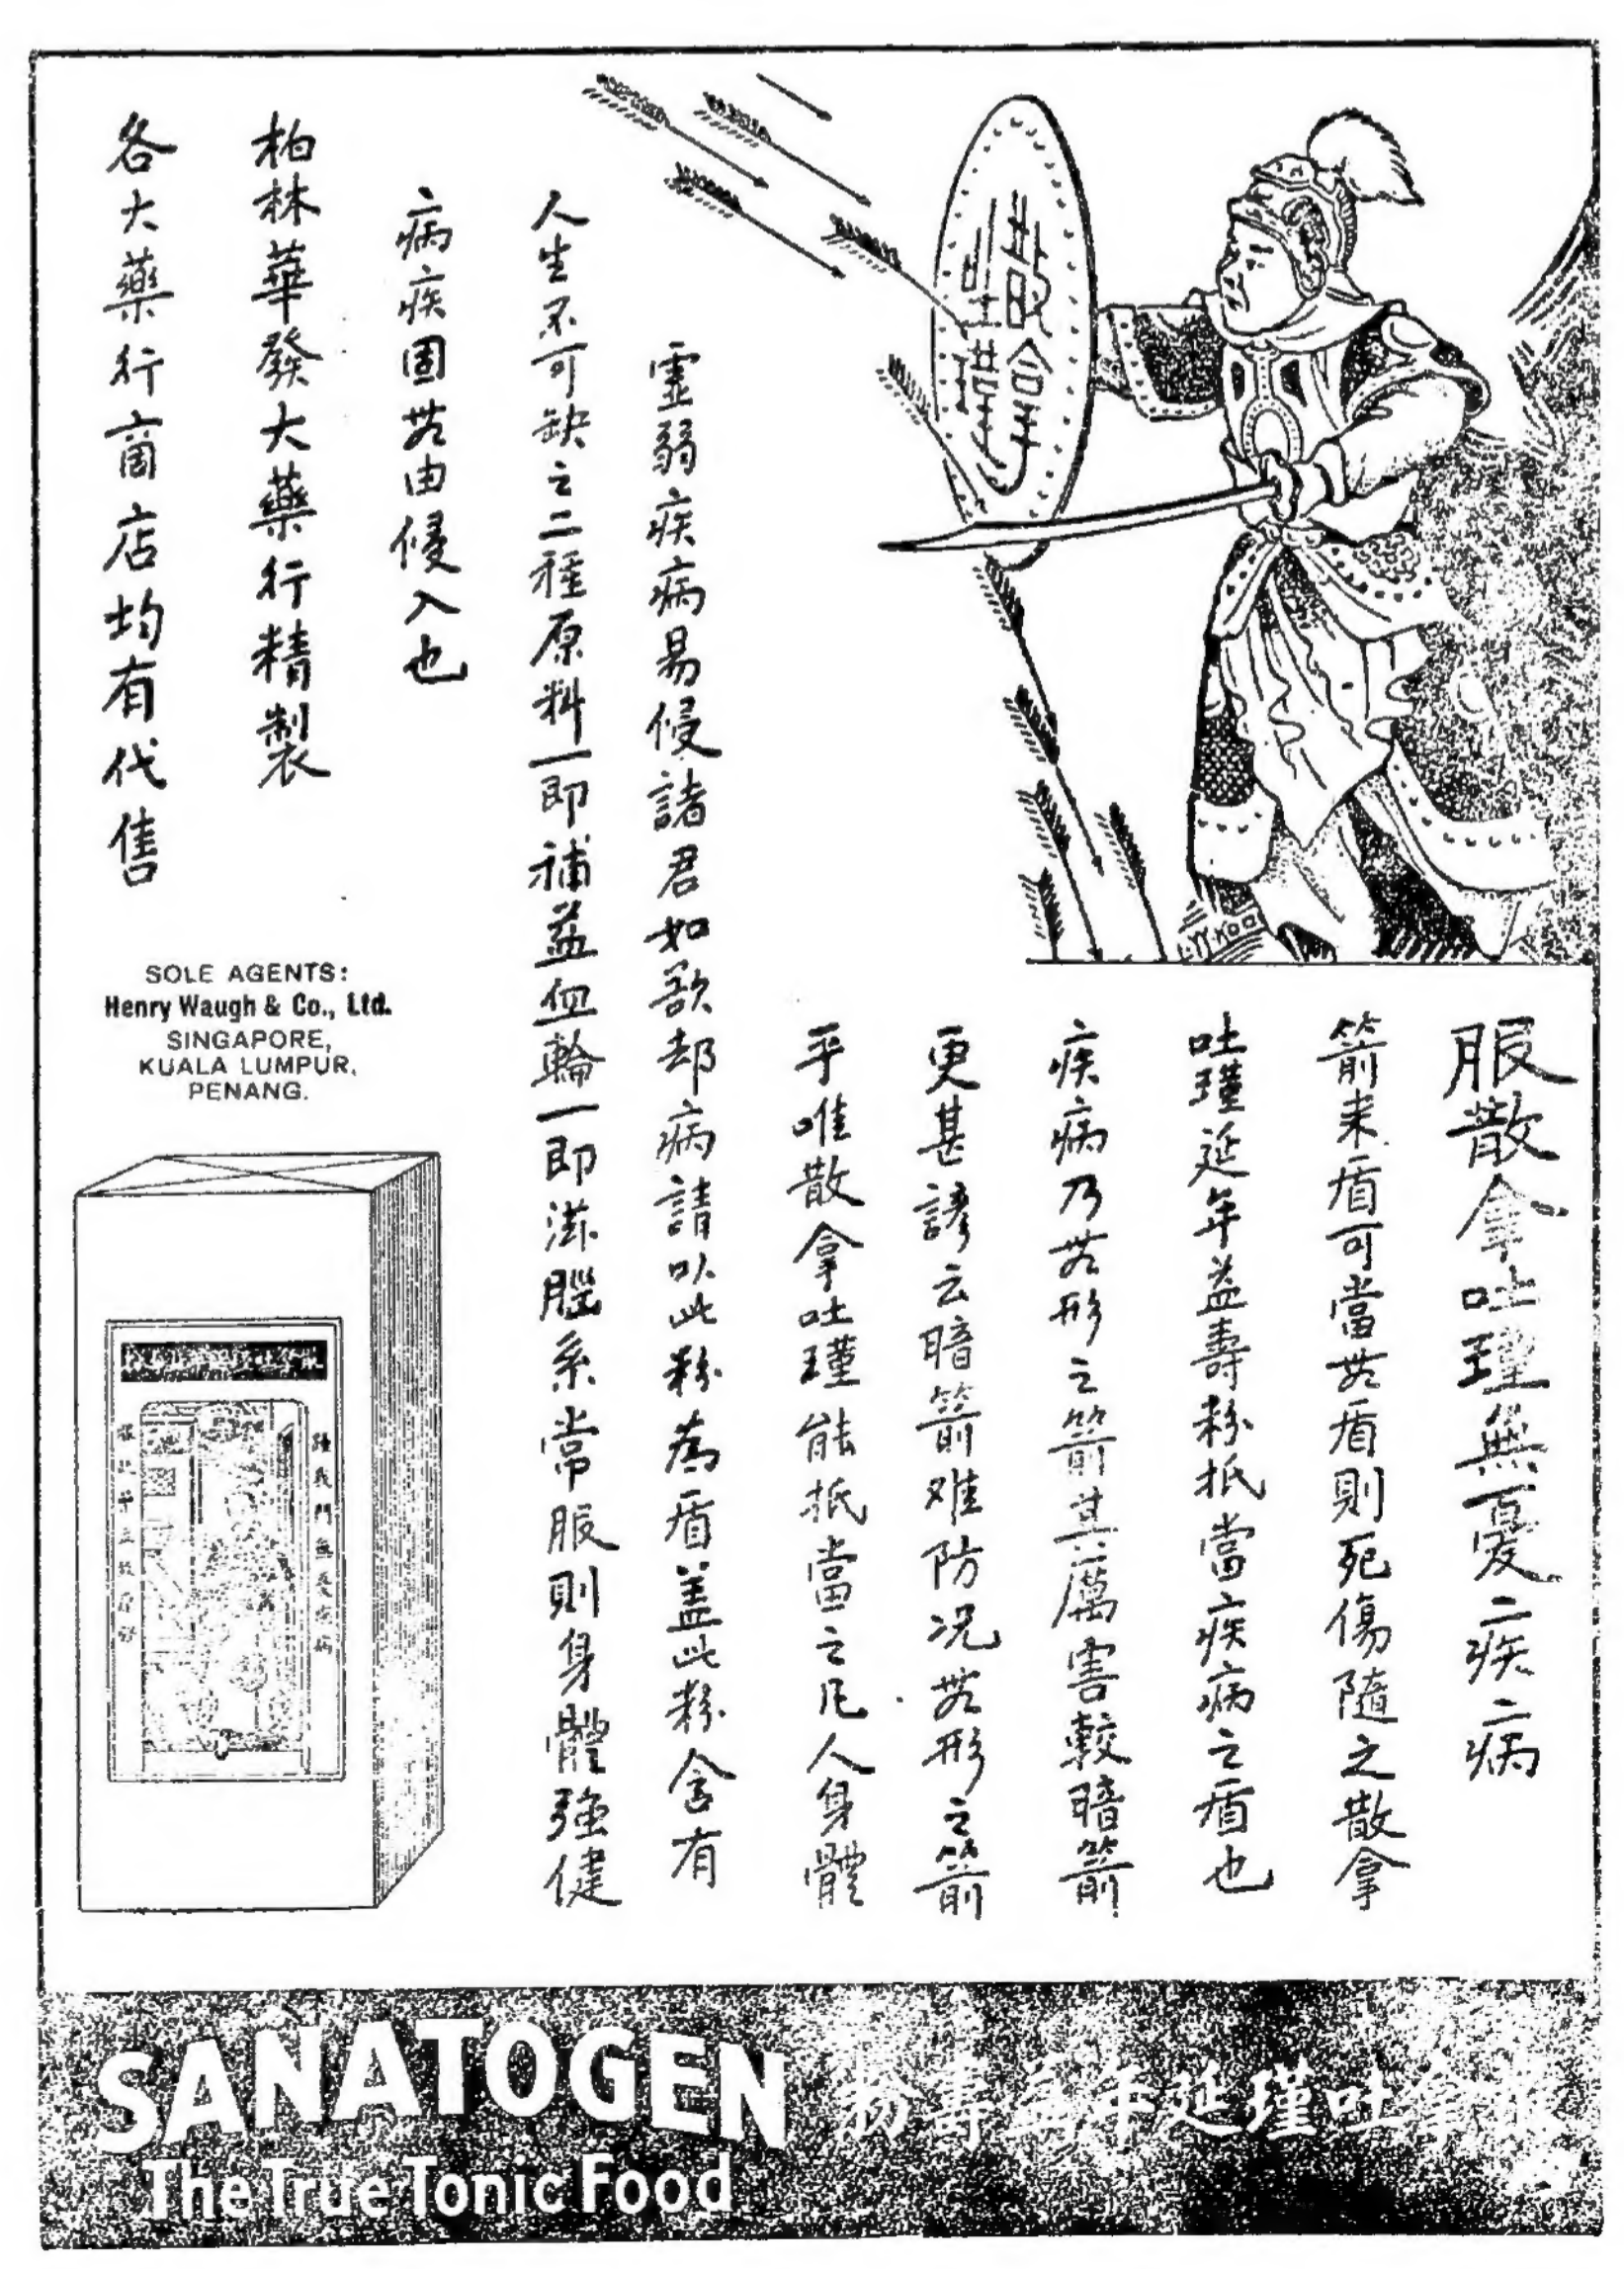 散拿
吐瑾
服散拿吐瑾無憂疾病
箭来盾可當無盾則死傷隨之散拿
吐瑾延年益壽粉抵當疾病之盾也
疾病乃無形之箭其厲害較暗箭
更甚諺云暗箭难防况無形之箭
乎唯散拿吐瑾能抵當之凡人身體
虛弱疾病易侵諸君如欲却病請以此粉為盾盖此粉含有
人生不可缺之二種原料一即補益血輪一即滋腦系常服則身體強健
病疾固無由侵入也
柏林華發大藥行精製
各大藥行商店均有代售
SOLE AGENTS:
Henry Waugh & Co., Ltd.
SINGAPORE,
KUALA LUMPUR,
PENANG.
散拿吐瑾延年益壽粉
SANATOGEN
The True Tonic Food